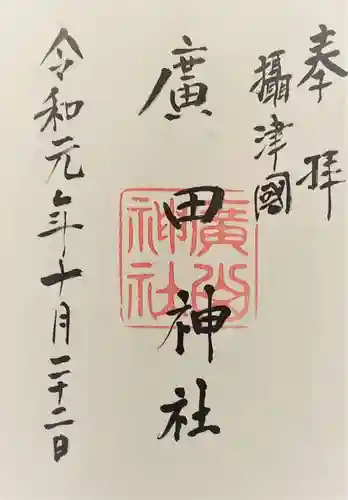 奉拝
攝津國
廣田神社
令和元年十月二十二日
廣田
神社